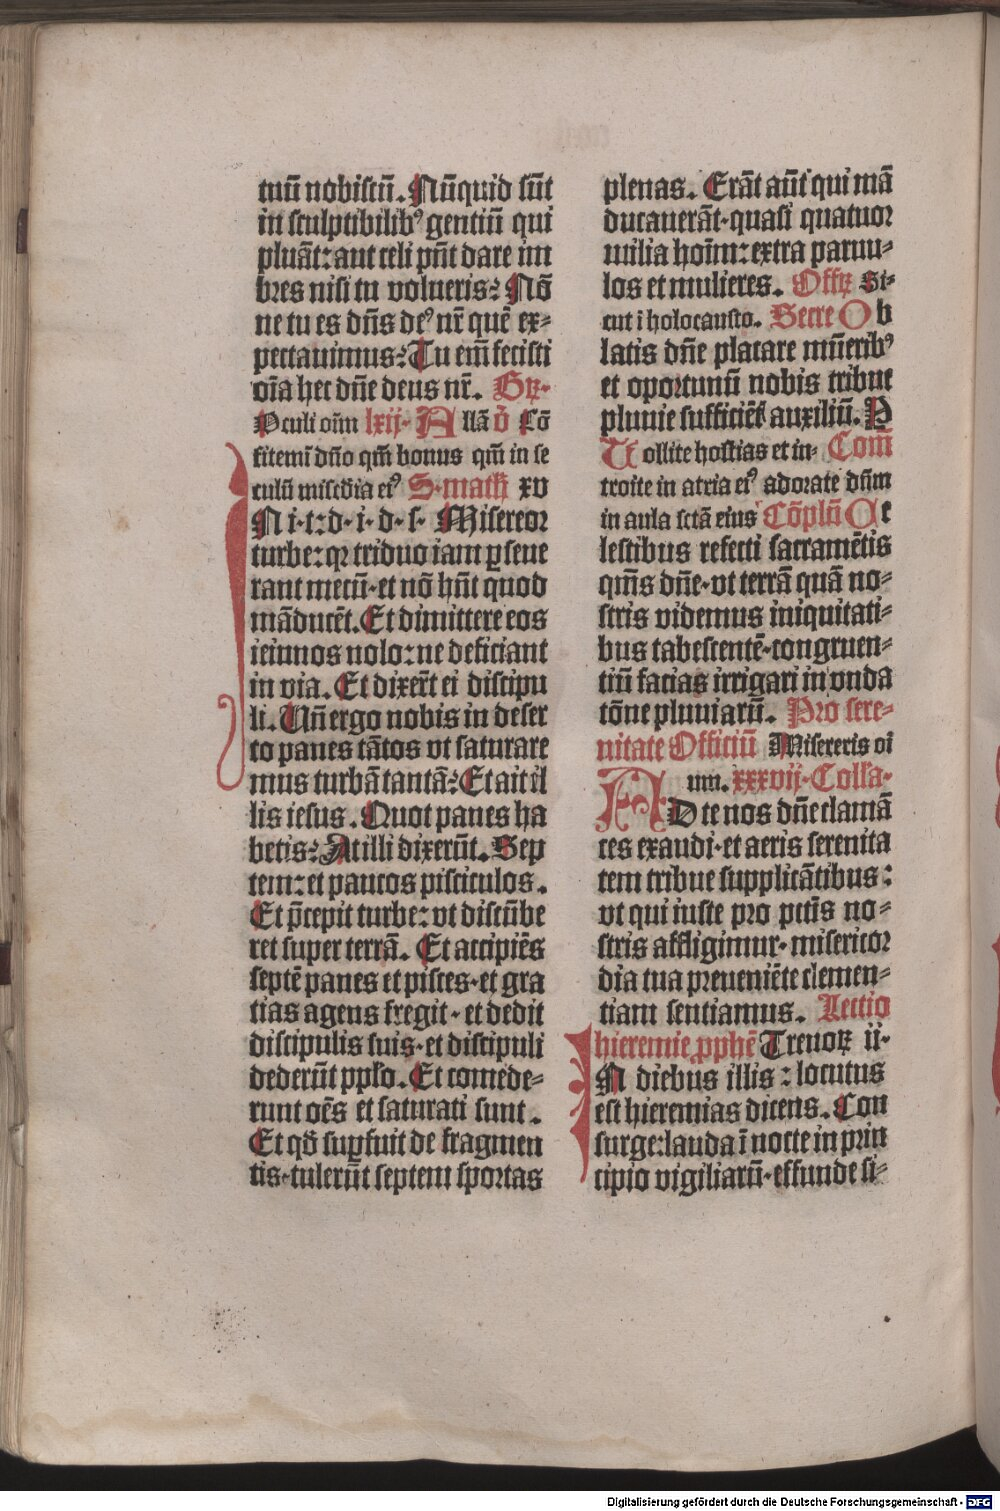 tuū nobiscū. Nūquid sūt
in sculptibilibꝰ gentiū qui
pluāt: aut celi pn̄t dare im
bres nisi tu volueris: Nō
ne tu es dn̄s deꝰ nr̄ quē ex-
pectauimus: Tu em̄ fecisti
oīa hec dn̄e deus nr̄. Gꝝ.
Oculi oīm lxij. Allā ꝟ Cō
fitemī dn̄o qm̄ bonus qm̄ in se
culū misc̄dia eiꝰ S. math xv
IN i. t: d. i. d. s. Misereor
turbe: qꝛ triduo iam ꝑseue
rant mecū. et nō hn̄t quod
māducēt. Et dimittere eos
ieiunos nolo: ne deficiant
in via. Et dixer̄t ei discipu
li. Vn̄ ergo nobis in deser
to panes tātos vt saturare
mus turbā tantā: Et ait il
lis iesus. Quot panes ha
betis: At illi dixerūt. Sep
tem: et paucos pisciculos.
Et p̄cepit turbe: vt discūbe
ret super terrā. Et accipiēs
septē panes et pisces. et gra
tias agens fregit. et dedit
discipulis suis. et discipuli
dederūt pplo. Et comede-
runt oēs et saturati sunt.
Et qd̄ suꝑfuit de fragmen
tis. tulerūt septem sportas
plenas. Erāt aūt qui mā
ducauerāt. quasi quatuor
milia hoīm: extra paruu-
los et mulieres. Offꝝ Si-
cut ī holocausto. Secre Ob
latis dn̄e placare mūeribꝰ
et oportunū nobis tribue
pluuie sufficiēt auxiliū. P
Tollite hostias et in- Com̄
troite in atria eiꝰ adorate dn̄m
in aula sctā eius Cōplū Ce
lestibus refecti sacramētis
qm̄s dn̄e. vt terrā quā no-
stris videmus iniquitati-
bus tabescentē. congruen-
tiū facias irrigari inunda
tōne pluuiarū. Pro sere-
nitate Officiū Misereris oī
um. xxxvij. Colla.
AD te nos dn̄e clamā
tes exaudi. et aeris serenita
tem tribue supplicātibus:
vt qui iuste pro pctīs no-
stris affligimur. misericor
dia tua preueniēte clemen-
tiam sentiamus. Lectio
hieremie ꝓphē Trenoꝝ ij.
IN diebus illis: locutus
est hieremias dicens. Con
surge: lauda ī nocte in prin
cipio vigiliarū. effunde si-
Digitalisierung gefördert durch die Deutsche Forschungsgemeinschaft - DFG